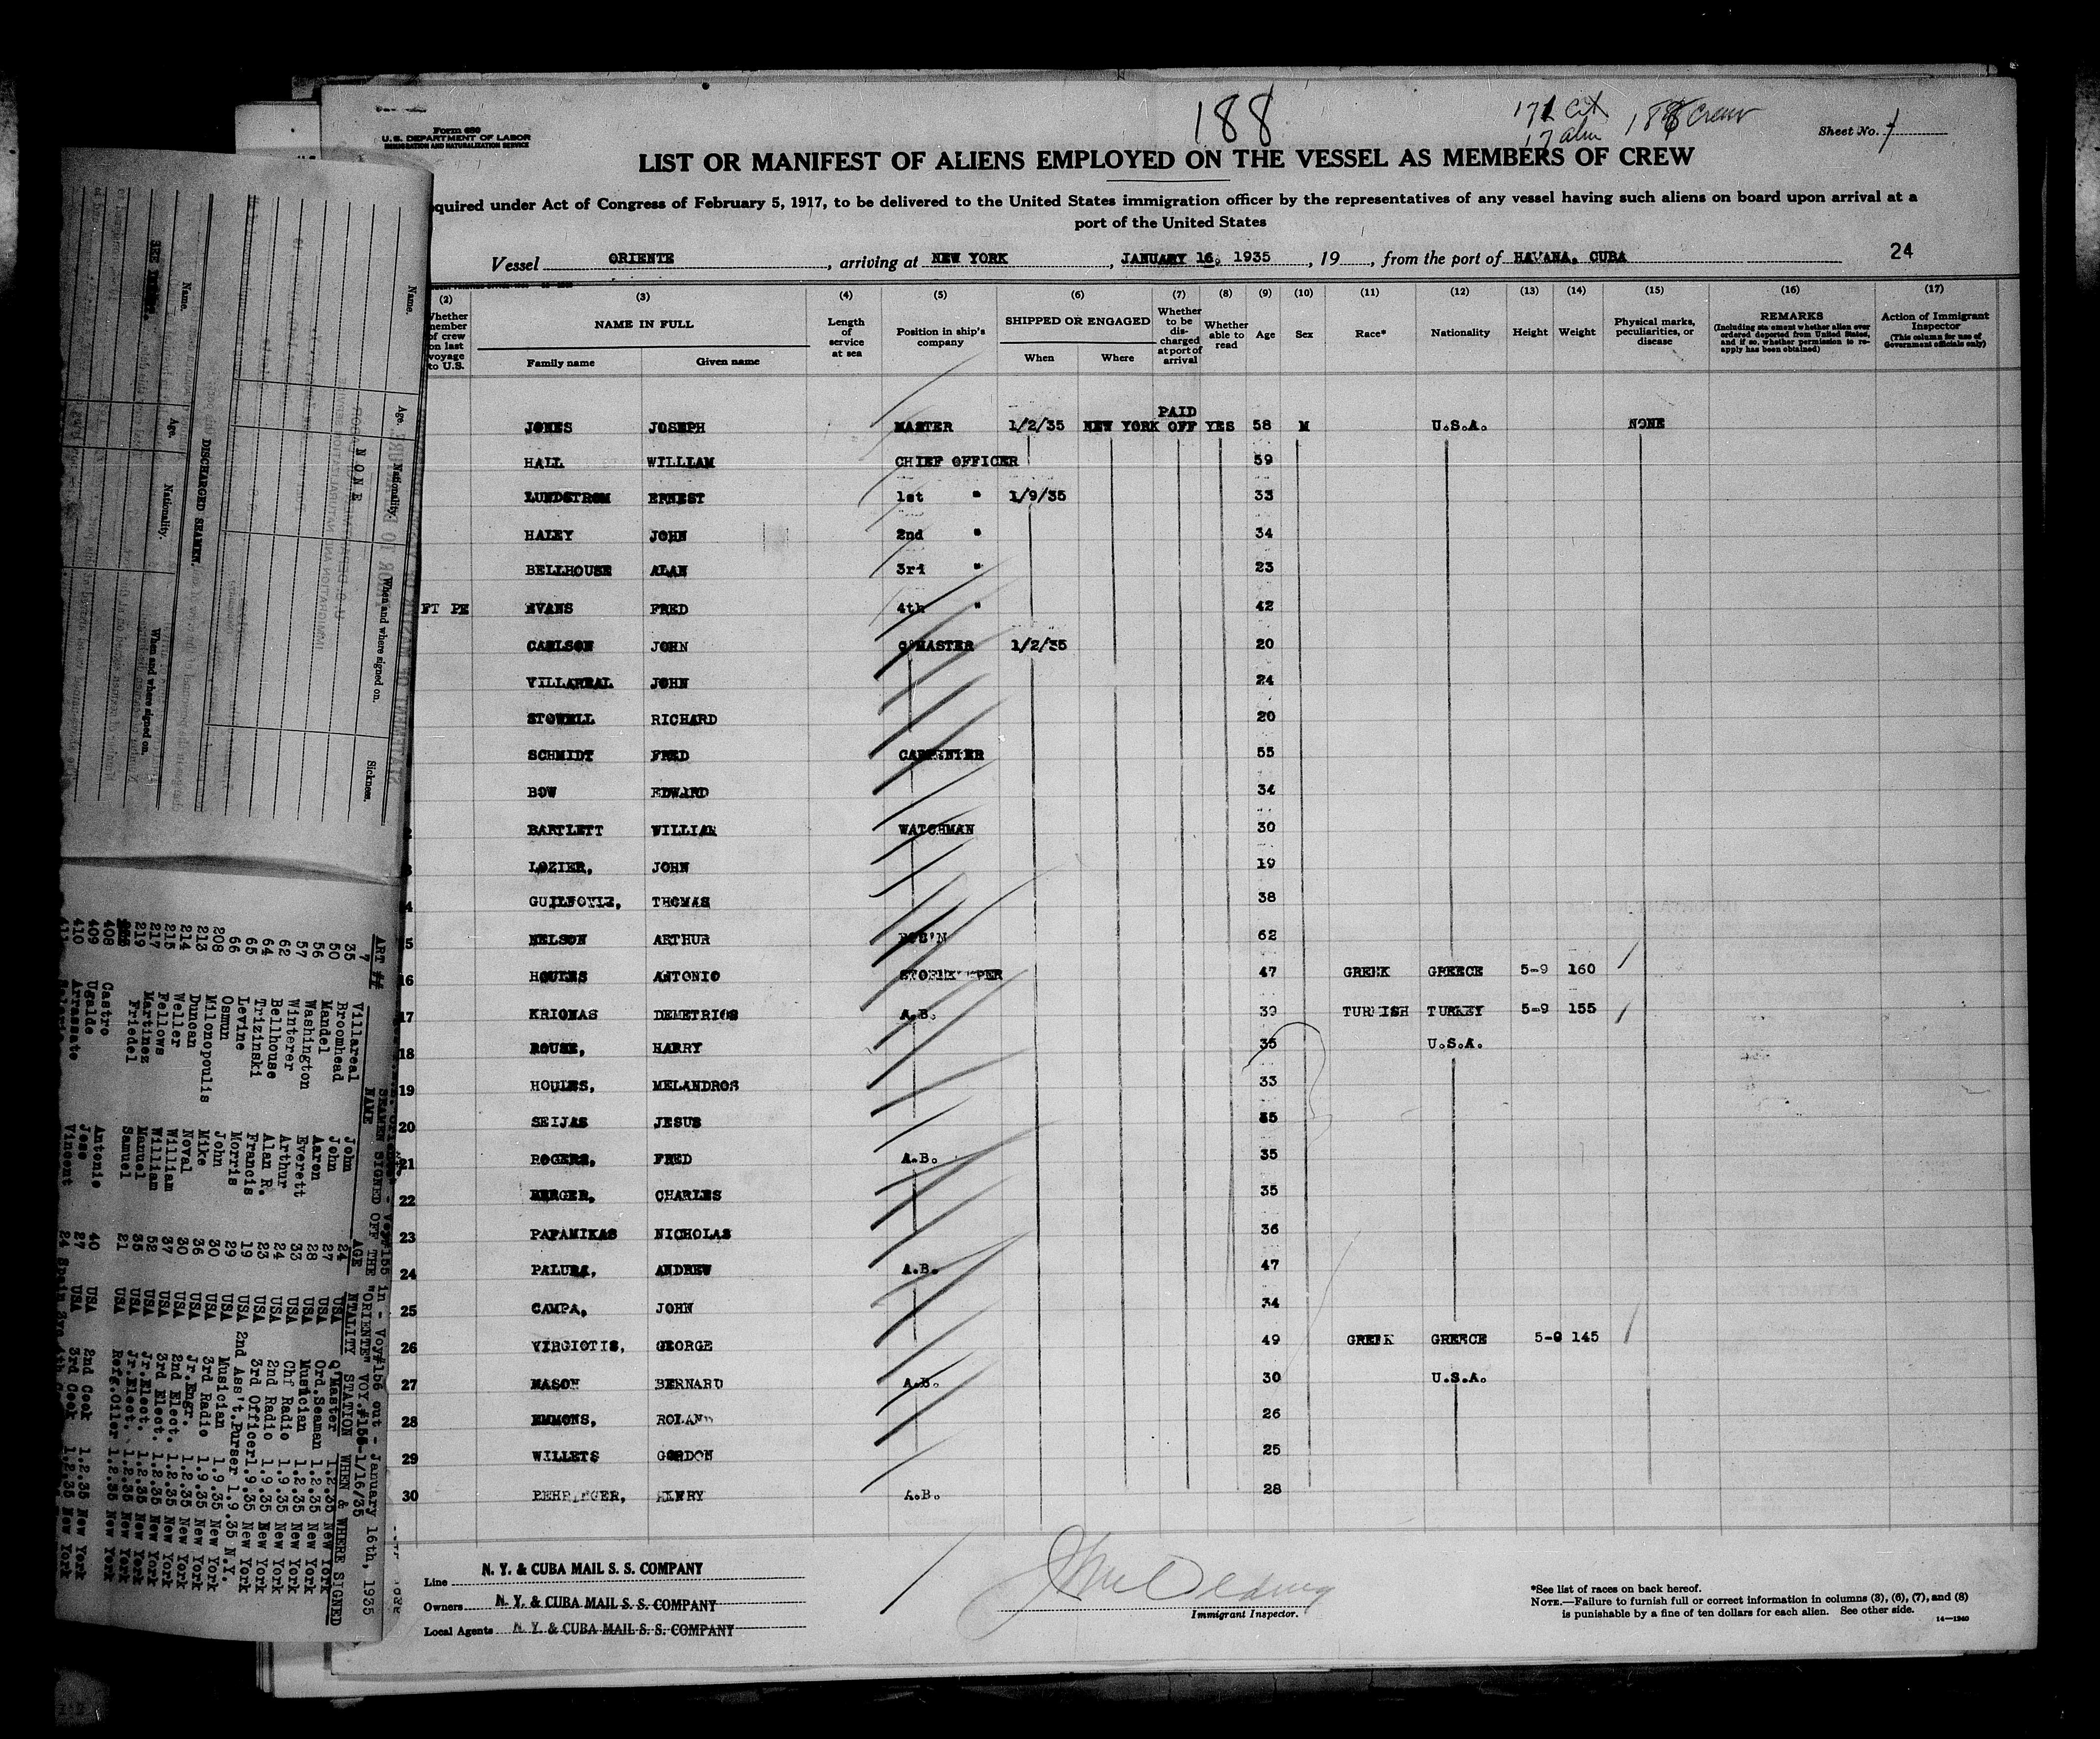 188
171 Cit 188 Crew
17 alm
Form 680
U. S. DEPARTMENT OF LABOR
IMMIGRATION AND NATURALIZATION SERVICE
Sheet No. 1
LIST OR MANIFEST OF ALIENS EMPLOYED ON THE VESSEL AS MEMBERS OF CREW
equired under Act of Congress of February 5, 1917, to be delivered to the United States immigration officer by the representatives of any vessel having such aliens on board upon arrival at a
port of the United States
Vessel ORIENTE, arriving at NEW YORK, JANUARY 16, 1935, 19, from the port of HAVANA, CUBA 24
(2) (3) (4) (5) (6) (7) (8) (9) (10) (11) (12) (13) (14) (15) (16) (17)
Whether member of crew on last voyage to U.S.
NAME IN FULL
Family name Given name
Length of service at sea
Position in ship's company
SHIPPED OR ENGAGED
When Where
Whether to be discharged at port of arrival
Whether able to read
Age Sex Race* Nationality Height Weight
Physical marks, peculiarities, or disease
REMARKS
(Including statement whether alien ever ordered deported from United States, and if so, whether permission to reapply has been obtained)
Action of Immigrant Inspector
(This column for use of Government officials only)
PAID
JONES JOSEPH MASTER 1/2/35 NEW YORK OFF YES 58 M U.S.A. NONE
HALL WILLIAM CHIEF OFFICER 59
LUNDSTROM ERNEST 1st " 1/9/35 33
HALEY JOHN 2nd " 34
BELLHOUSE ALAN 3rd " 23
FT PE EVANS FRED 4th " 42
CARLSON JOHN Q'MASTER 1/2/35 20
VILLAREAL JOHN 24
STOWELL RICHARD 20
SCHMIDT FRED CARPENTER 55
BOW EDWARD 34
BARTLETT WILLIAM WATCHMAN 30
LOZIER, JOHN 19
GUILFOYLE, THOMAS 38
15 NELSON ARTHUR BOS'N 62
16 HOULES ANTONIO STOREKEEPER 47 GREEK GREECE 5-9 160
17 KRIONAS DEMETRIOS A.B. 39 TURKISH TURKEY 5-9 155
18 ROUSE, HARRY 35 U.S.A.
19 HOULES, MELANDROS 33
20 SEIJAS JESUS 35
21 ROGERS, FRED A.B. 35
22 BERGER, CHARLES 35
23 PAPAMIKAS NICHOLAS 36
24 PALURA, ANDREW A.B. 47
25 CAMPA, JOHN 34
26 VIRGIOTIS, GEORGE 49 GREEK GREECE 145
27 MASON BERNARD A.B. 30 U.S.A.
28 EMMONS, ROLAND 26
29 WILLETS GORDON 25
30 BEHRINGER, HENRY A.B. 28
Line N. Y. & CUBA MAIL S. S. COMPANY
Owners N. Y. & CUBA MAIL S. S. COMPANY
Local Agents N. Y. & CUBA MAIL S. S. COMPANY
Immigrant Inspector.
*See list of races on back hereof.
NOTE.—Failure to furnish full or correct information in columns (3), (6), (7), and (8)
is punishable by a fine of ten dollars for each alien. See other side.
14—1240
Name. Age. Nationality. When and where signed on. Sickness.
NONE
DISCHARGED SEAMEN.
Name. Age. Nationality. When and where signed on.
Voy#155 in - Voy#156 out - January 16th, 1935
SEAMEN SIGNED OFF THE "ORIENTE" VOY.#155-1/16/35
ART # NAME AGE NTALITY STATION WHEN & WHERE SIGNED
7 Villareal John 24 USA Q'Master 1.2.35 New York
35 Broomhead John 27 USA Ord.Seaman 1.2.35 New York
50 Mandel Aaron 28 USA Musician 1.2.35 New York
56 Washington Everett 33 USA Chf Radio 1.9.35 New York
57 Winterer Arthur 24 USA 2nd Radio 1.9.35 New York
62 Bellhouse Alan R. 23 USA 3rd Officer 1.9.35 New York
64 Trizinski Francis 19 USA 2nd Ass't.Purser 1.9.35 N.Y.
65 Levine Morris 29 USA Musician 1.9.35 New York
66 Osmun John 30 USA 3rd Radio 1.9.35 New York
208 Milonopoulis Mike 36 USA Jr.Engr. 1.2.35 New York
213 Duncan Noval 30 USA 2nd Elect. 1.2.35 New York
214 Weller William 37 USA 3rd Elect. 1.2.35 New York
215 Fellows William 52 USA Jr.Elect. 1.2.35 New York
217 Martinez Manuel 35 USA Jr.Elect. 1.2.35 New York
219 Friedel Samuel 21 USA Refg.Oiler 1.2.35 New York
408 Castro Antonio 40 USA 2nd Cook 1.2.35 New York
409 Ugalde Jose 27 USA 3rd Cook 1.2.35 New York
410 Arrassate Vincent 24 Spain